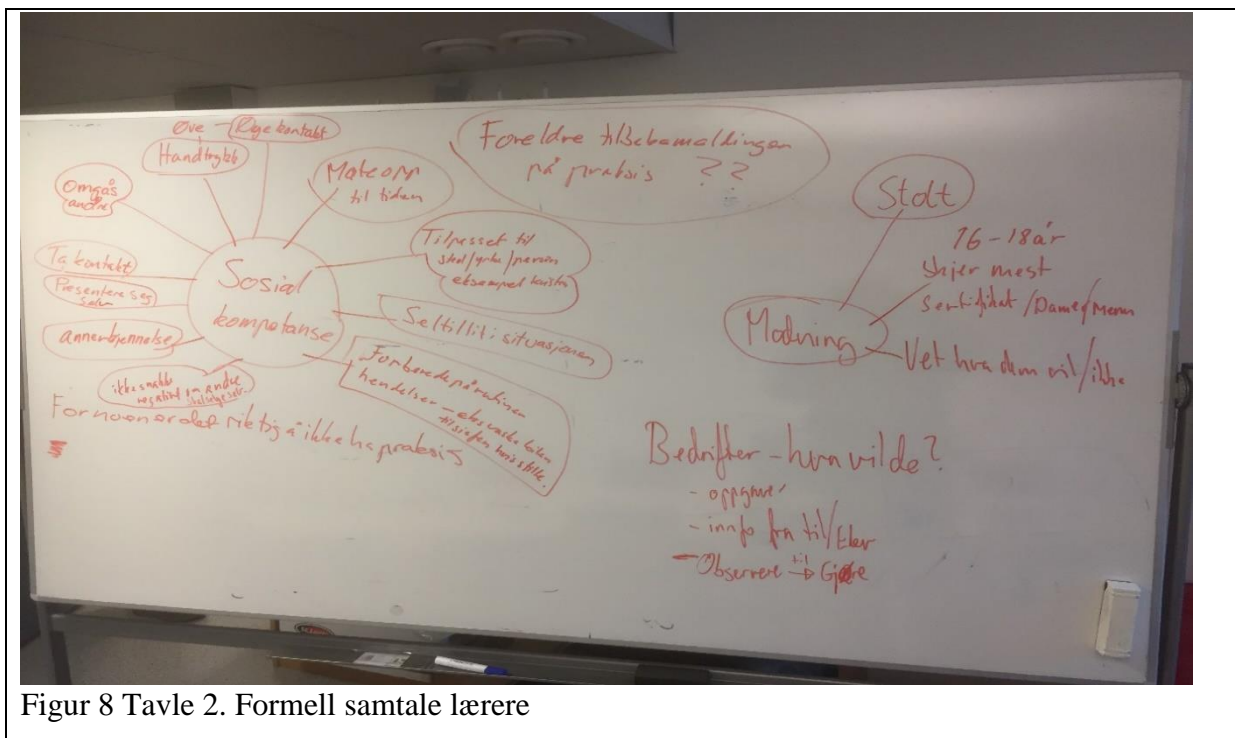 Øve - Øyekontakt
Handtrykk
Omgås
andre
Møte opp
til tiden
Foreldre tilbakemeldingen
på praksis ??
Ta kontakt
Presentere seg
selv
annerkjennelse
ikke snakke
negativt om andre
Sosial
kompetanse
Tilpasset til
sted/yrke/person
eksempel
Seltillit i situasjonen
Forberede på rutinen
hendelser - eks vaske
hvis stille.
For noen er det riktig å ikke ha praksis
Stolt
16-18 år
skjer mest
Sertifikat/Damer/Menn
Modning
Vet hva dem vil/ikke
Bedrifter - hva vil de?
- oppgave
- innfo fra til/Elev
- Observere til → Gjøre
Figur 8 Tavle 2. Formell samtale lærere